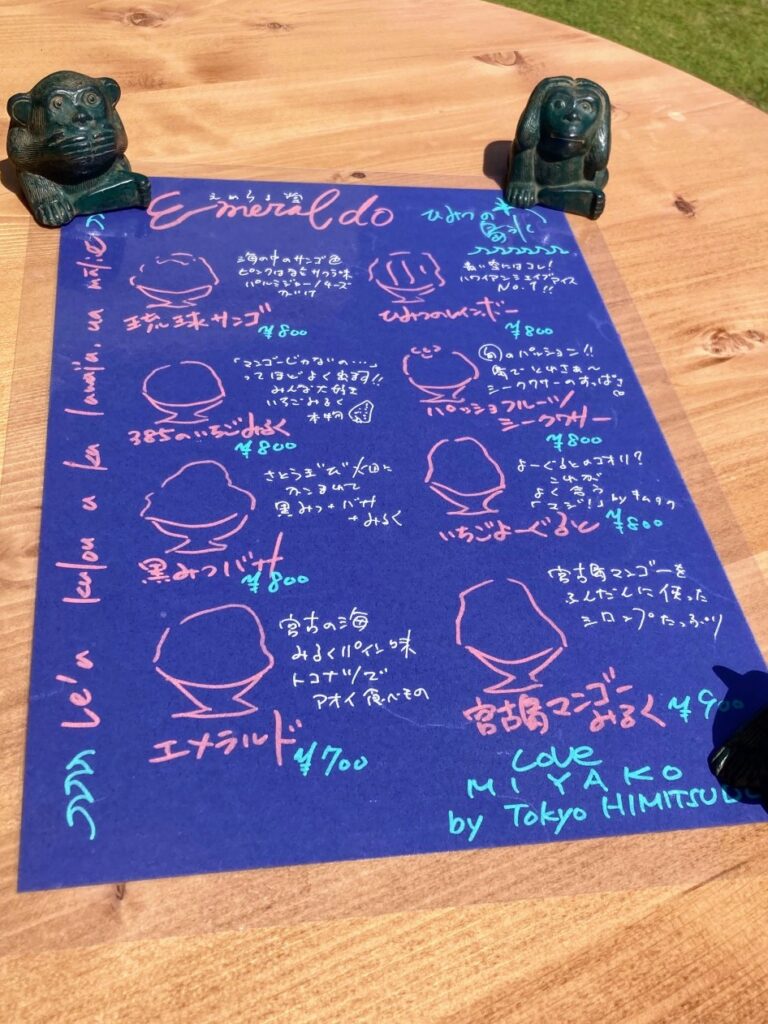 えめらるど
Emeraldo
ひみつの
島氷
海の中のサンゴ色
琉球サンゴ
¥800
青い空にはコレ!
ハワイアンシェイブアイス
No.1!!
ひみつのレインボー
¥800
「マンゴーじゃないの…」
ってほどよく出ます!!
みんな大好き
いちごみるく
本物
385のいちごみるく
¥800
旬のパッション!!
島でとれたぁ〜
シークワサーのすっぱさ
パッションフルーツ/
シークワサー
¥800
さとうきび畑に
かこまれて
黒みつ+バナナ
+みるく
黒みつバナナ
¥800
よーぐるとのコオリ?
これが
よく合う
「マジ!」by キムタク
いちごよーぐると
¥800
宮古の海
みるくパイン味
トコナツで
アオイ食べもの
エメラルド
¥700
宮古島マンゴーを
ふんだんに使った
シロップたっぷり
宮古島マンゴー
みるく
¥900
Love
MIYAKO
by Tokyo HIMITSUDO
Le'a kulou a ka lawaia, ua mālie